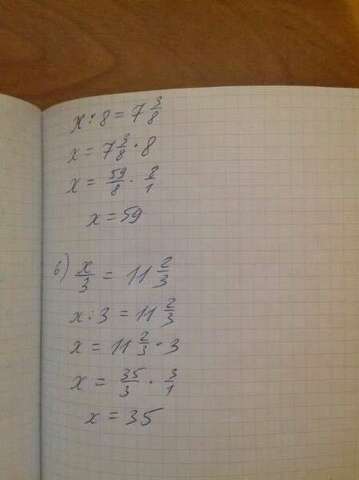 x : 8 = 7 3/8
x = 7 3/8 · 8
x = 59/8 · 8/1
x = 59
б) x/3 = 11 2/3
x : 3 = 11 2/3
x = 11 2/3 · 3
x = 35/3 · 3/1
x = 35